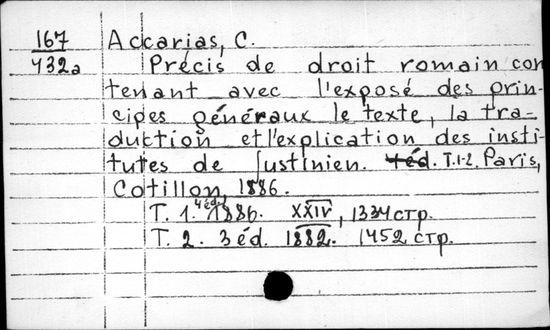 167 Accarias, C.
432a Précis de droit romain con
tenant avec l'exposé des prin-
cipes généraux le texte, la tra-
duction et l'explication des insti-
tutes de Justinien. 4 éd. T.1-2. Paris,
Cotillon, 1886.
T. 1. 4 éd. 1886. XXIV, 1334 стр.
T. 2. 3 éd. 1882. 1452 стр.